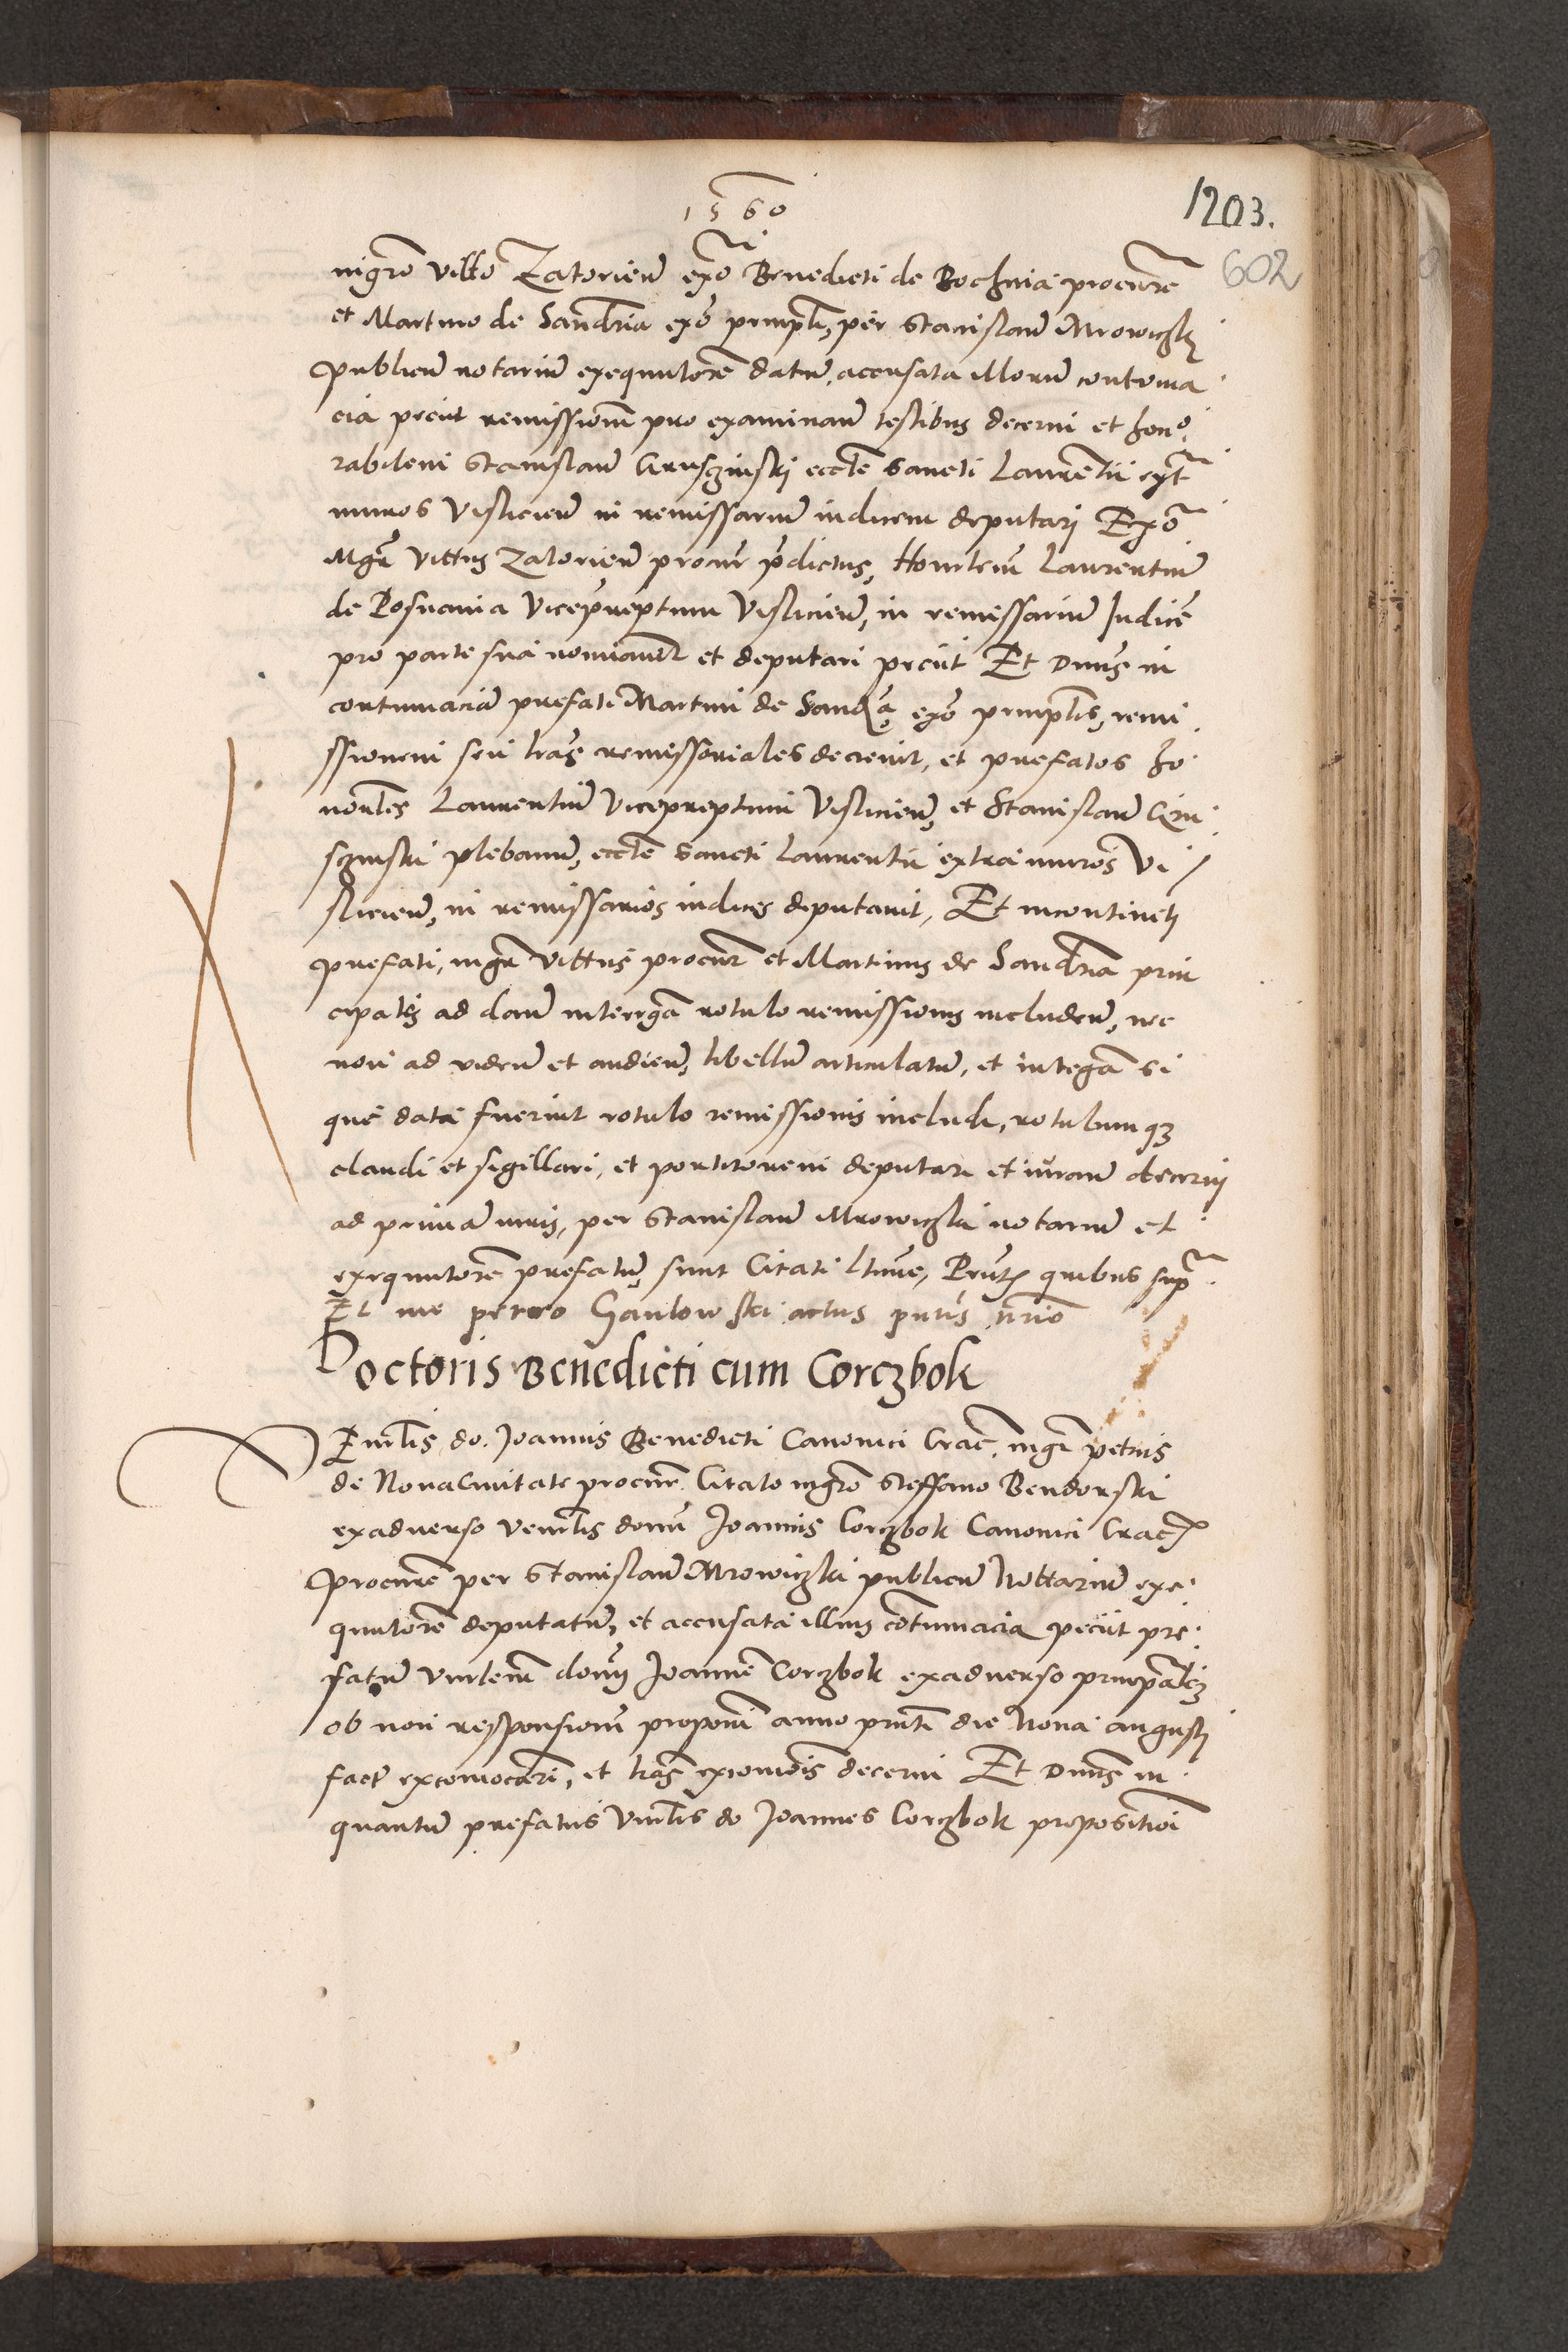 1560
1203.
602
mgro vitto Zatorien exo Benedicti de Bochnia procure
et Martino de Sandria exo prinpli, per Stanislau Mrowiczki
publicu notariu exequutore datu, accusata illoru contuma
cia peciit remissionem pro examinan testibus decerni et hono
rabilem Stanislau Gruszinski eccle Sancti Laurentii ext
muros Vislicien in remissariu iudicem deputari Exo
Mgr Vittus Zatorien procur predictus, Honrlem Laurentiu
de Posnania Viceprepturn Vislicien, in remissariu Judice
pro parte sua nominavit et deputari peciit Et Dnus in
contumacia prefati Martini de Sandria exo prinplis, remi
ssionem seu lras remissoriales decrevit, et prefatos ho
norles Laurentiu Viceprepturn Vislicien, et Stanislau Gru
szinski plebanu, eccle Sancti Laurentii extra muros Vi
slicien, in remissarios iudices deputavit, Et incontineti
prefati, mgr Vittus procur et Martinus de Sandria prin
cipales ad dan interrga rotulo remissionis includen, nec
non ad viden et audien, libellu articulatu, et interga si
que data fuerint rotulo remissionis includi, rotulumq3
claudi et sigillari, et portitorem deputari et iuran decerni
ad prima iuris, per Stanislau Mrowiczki notariu et
exequutore prefatu, sunt Citati ltime, Prntibus quibus supra
Et me petro Gawlowski actus pntis nrio
Doctoris Benedicti cum Corczbok
Vnrlis do. Joannis Benedicti Canonici Crac. mgr petrus
de Nova Civitate procure Citato mgro Steffano Bendorski
exadverso Venrlis domi Joannis Corczbok Canonici Crac
Procure per Stanislau Mrowiczki publicu Nottariu exe
quutore deputatu, et accusata illius cotumacia peciit pre
fatu Vnrlem domi Joanne Corczbok exadverso principale
ob non responsione proponi anno pnti die Nona augusti
fact excomocari, et lras excomois decerni Et Dnus in
quantu prefatus Vnrlis do Joannes Corczbok propositioi